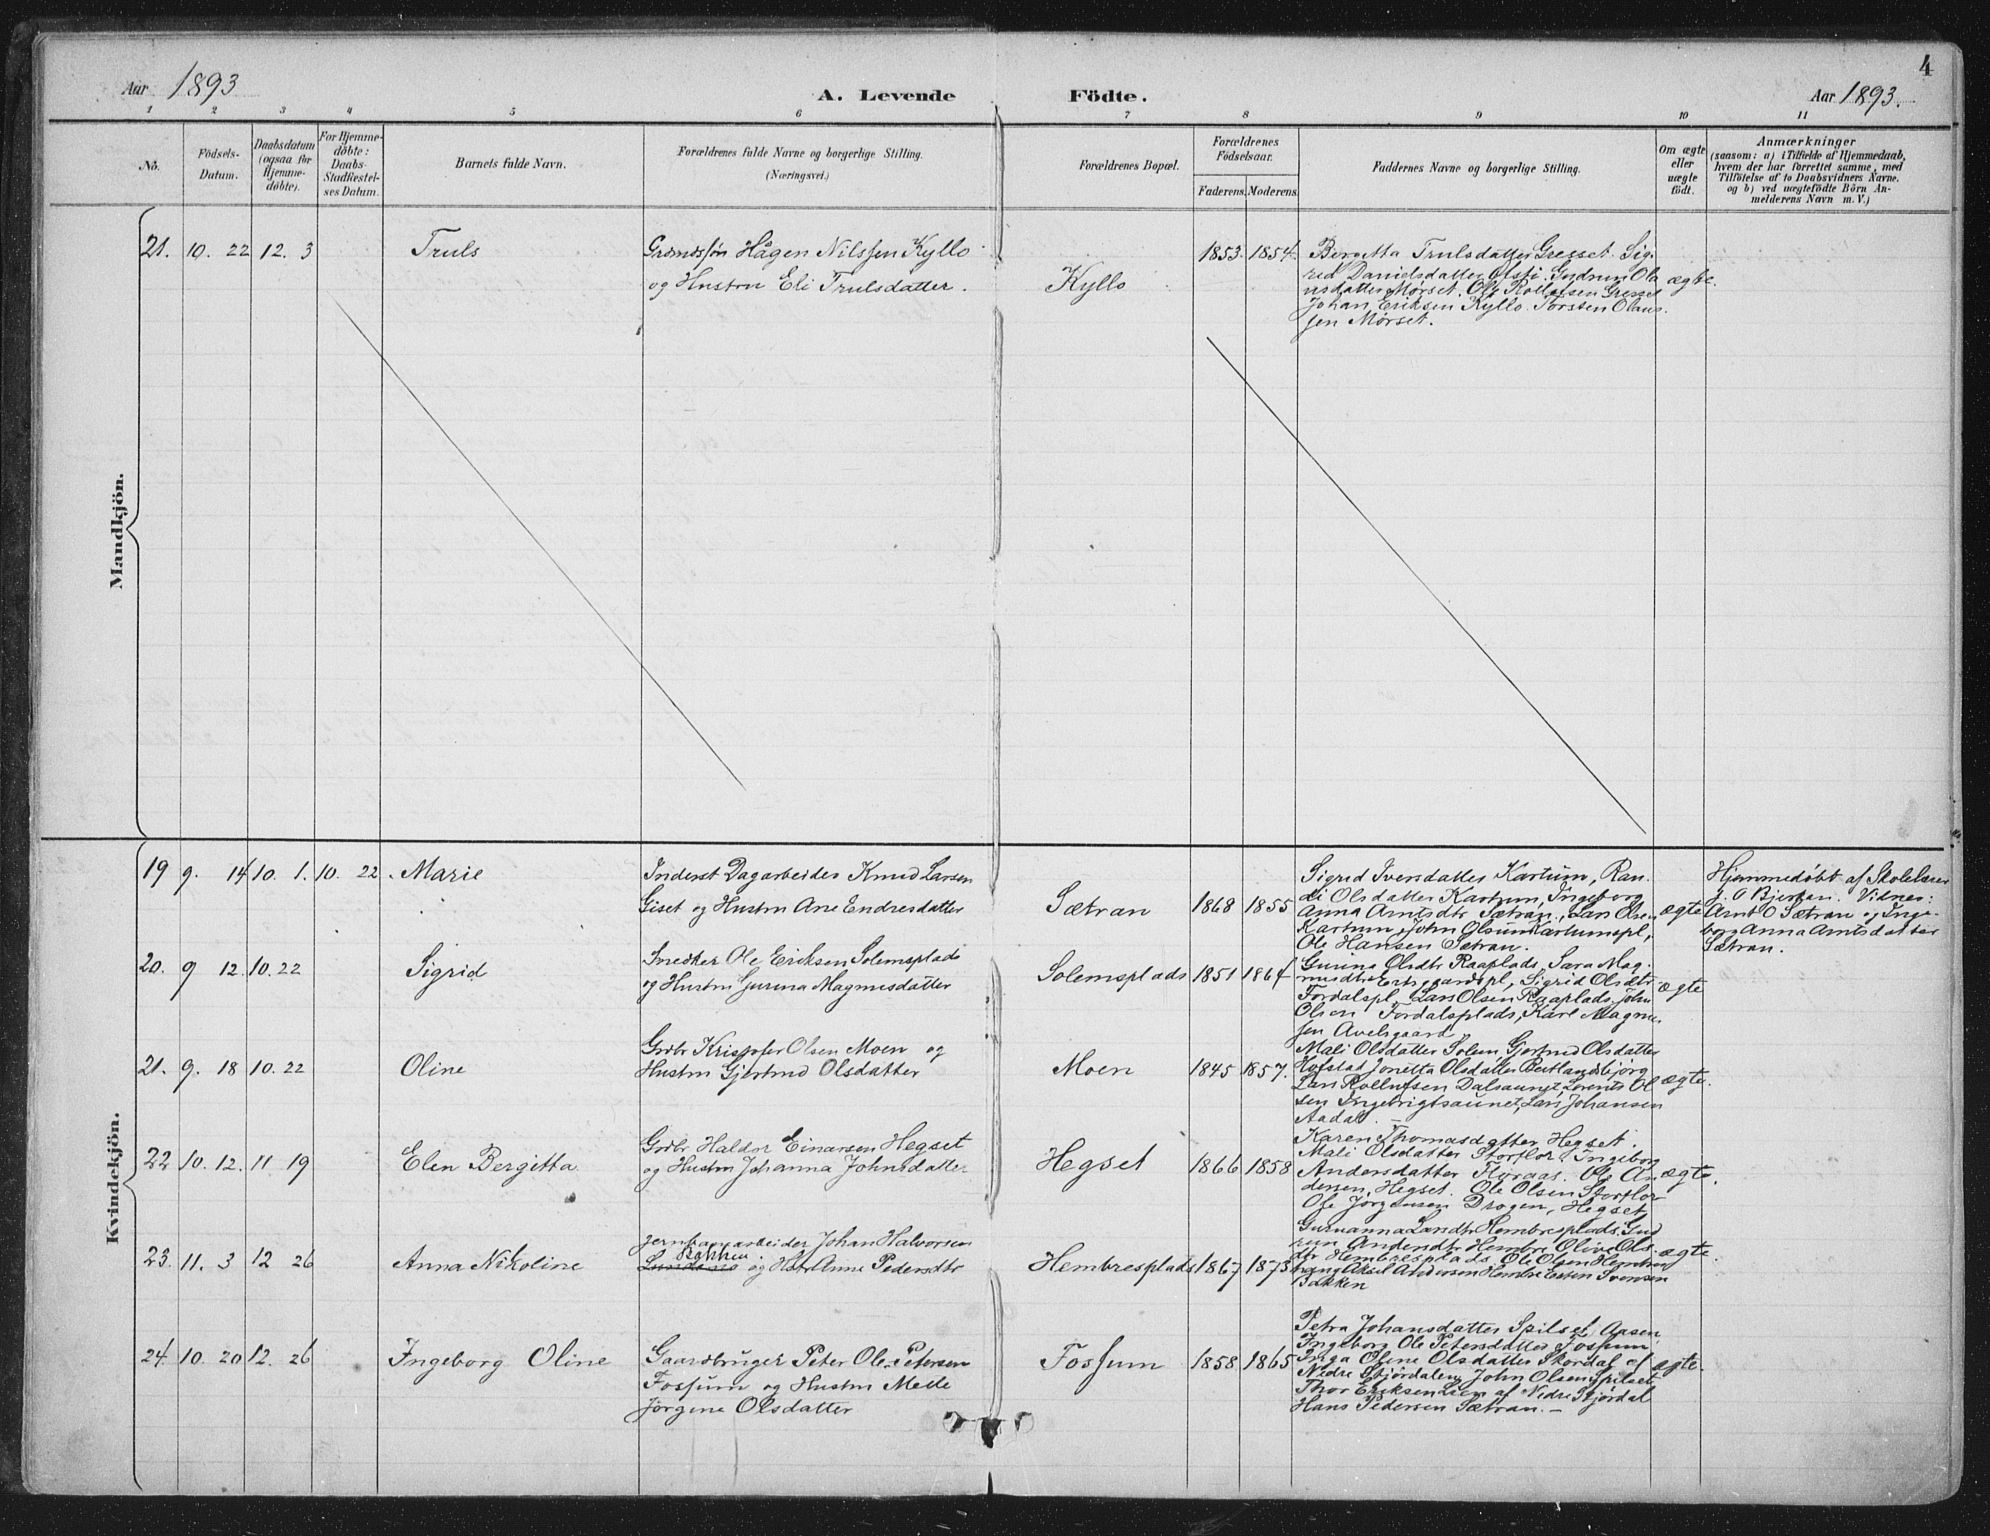 4
Aar 1893
A. Levende Födte.
Aar 1893.
1 2 3 4 5 6 7 8 9 10 11
No.
Födsels-Datum.
Daabsdatum (ogsaa för Hjemme-döbte).
For Hjemme-döbte: Daabs-Stadfæstel-ses Datum.
Barnets fulde Navn.
Forældrenes fulde Navne og borgerlige Stilling.
(Næringsvei.)
Forældrenes Bopæl.
Forældrenes Födselsaar.
Faderens. Moderens.
Faddernes Navne og borgerlige Stilling.
Om ægte eller uægte födt.
Anmærkninger
(saasom: a) i Tilfælde af Hjemmedaab,
hvem der har forrettet samme, med
Tilföielse af to Daabsvidners Navne,
og b) ved uægtefödte Börn An-
melderens Navn m. V.)
Mandkjön.
21. 10. 22 12. 3 Truls
Grdmdssøn Hågen Nilssen Kyllo
og Hustru Eli Trulsdatter.
Kyllo
1853. 1854.
Bergitta Trulsdatter Gresset. Sig-
rid Danielsdatter Gudrun Ola
usdatter Mørset. Ole Gresset
Johan Eriksen Kyllo. Torsten Olaus
sen Mørset.
ægte.
Kvindekjön.
19 9. 14 10. 1. 10. 22. Marie
Inderst Dagarbeider Knud Larsen
Giset og Hustru Ane Endresdatter
Sætran
1868 1855
Sigrid Iversdatter Kartum, Ran-
di Olsdatter Kartum, Ingeborg
Anna Arntsdtr Sætran, Lars Olsen
Kartum, John Olsen Kartumspl,
Ole Hansen Sætran.
ægte
Hjemmedøbt af Skolelærer
J. O Bjertan. Vidner:
Arnt O Sætran og Inge-
borg Anna Arntsdatter
Sætran.
20. 9 12. 10. 22 Sigrid
Snedker Ole Eriksen Solemsplads
og Hustru Gurina Magnusdatter
Solemsplads 1851 1864
Gurina Olsdtr Raaplads, Sara Mag-
nusdtr Sigrid Olsdtr
Fordalspl, Lars Olsen Raaplads, John
Olsen Fordalsplads, Karl Magnus-
sen Avelsgaard
ægte
21. 9. 18 10. 22 Oline
Grdbr Kristofer Olsen Moen og
Hustru Gjertrud Olsdatter
Moen 1845 1857.
Mali Olsdatter Solem, Gjertrud Olsdatter
Hofstad, Jonetta Olsdatter
Lars Rollufsen Dalsaunet, Lorents Ol
sen Ingebrigtsaunet, Lars Johansen
Aadal.
ægte.
22 10. 12. 11 19 Elen Bergitta
Grdbr Haldor Einarsen Hegset
og Hustru Johanna Johnsdatter
Hegset 1866 1858
Karen Thomasdatter Hegset.
Mali Olsdatter Storflor. Ingeborg
Andersdatter Floraas. Ole An
dersen, Hegset. Ole Olsen Storflor
Ole Jørgensen Drogen, Hegset
ægte.
23. 11. 3 12 26 Anna Nikoline
Jernbanearbeider Johan Halvorsen
Bakken.
og Hstr Anne Pedersdtr
Hembresplads 1867 1873
Gurianna Larsdtr Hembresplads. Gud
run Andersdtr Hembre Olive Ols-
dtr Hembresplads, Ole Olsen Hembre
haug Aksel Andersen Hembre Svensen
Bakken
ægte
24. 10. 20 12. 26 Ingeborg Oline
Gaardbruger Peter Ole Petersen
Fossum og Hustru Mette
Jørgine Olsdatter
Fossum 1858 1865
Petra Johansdatter Spilset, Aasen
Ingeborg Ole Petersdatter Fossum
Inga Oline Olsdatter Skordal af
Nedre Stjørdalen, John Olsen Spilset
Thor Eriksen Lien af Nedre Stjørdal
Hans Pedersen Sætran. —
ægte.